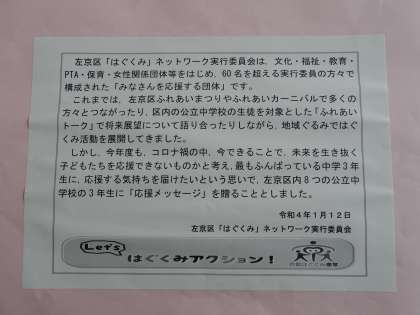 左京区「はぐくみ」ネットワーク実行委員会は、文化・福祉・教育・
PTA・保育・女性関係団体等をはじめ、60名を超える実行委員の方々で
構成された「みなさんを応援する団体」です。
これまでは、左京区ふれあいまつりやふれあいカーニバルで多くの
方々とつながったり、区内の公立中学校の生徒を対象とした「ふれあい
トーク」で将来展望について語り合ったりしながら、地域ぐるみではぐ
くみ活動を展開してきました。
しかし、今年度も、コロナ禍の中、今できることで、未来を生き抜く
子どもたちを応援できないものかと考え、最もふんばっている中学3年
生に、応援する気持ちを届けたいという思いで、左京区内8つの公立中
学校の3年生に「応援メッセージ」を贈ることとしました。
令和4年1月12日
左京区「はぐくみ」ネットワーク実行委員会
Let's
はぐくみアクション!